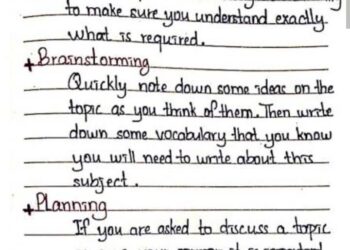 to make sure you understand exactly
what is required.
+Brainstorming
Quickly note down some ideas on the
topic as you think of them. Then write
down some vocabulary that you know
you will need to write about this
subject.
+Planning
If you are asked to discuss a topic